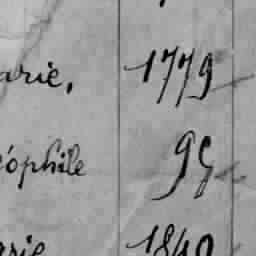 arie, 1779
éophile 95
arie 1840